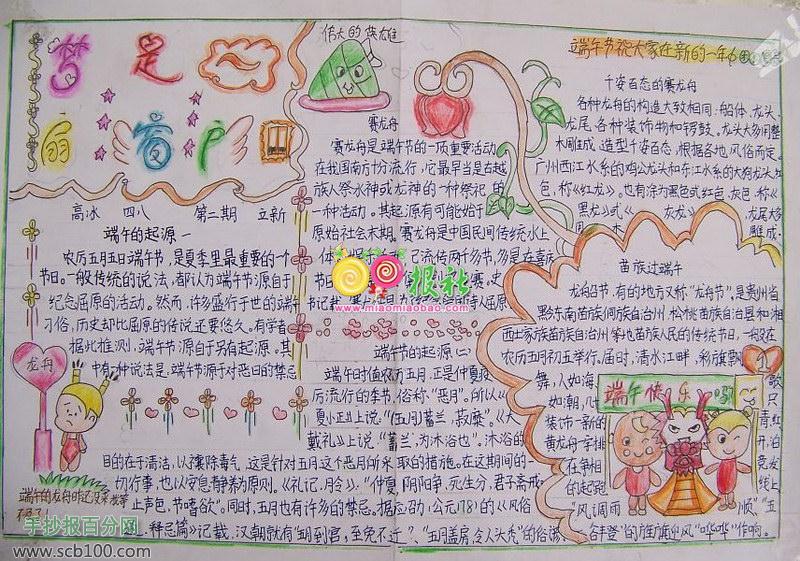 梦是
扇窗户
高冰 四八 第二期 立新
端午的起源一
农历五月五日端午节，是夏季里最重要的一个
节日。一般传统的说法，都认为端午节源自于
纪念屈原的活动。然而，许多盛行于世的端午
习俗，历史却比屈原的传说还要悠久。有学者
据此推测，端午节源自另有起源。其
中有一种说法是，端午节源于对恶日的禁忌
龙舟
端午的龙舟
伟大的
赛龙舟
赛龙舟是端午节的一项重要活动，
在我国南方十分流行，它最早当是古越
族人祭水神或龙神的一种祭祀的
一种活动。其起源有可能始于
原始社会末期。赛龙舟是中国民间传统水上
报社
www.miaomiaobao.com
端午节的起源(二)
端午时值农历五月，正是仲夏疫
厉流行的季节，俗称“恶月”。所以《
夏小正》上说：“(五月)蓄兰，菽糜。”《大
戴礼》上说“蓄兰，为沐浴也”。沐浴的
目的在于清洁，以禳除毒气，这是针对五月这个恶月所采取的措施。在这期间的一
切行事，也以安息静养为原则。《礼记，月令》：“仲夏，阴阳争，死生分，君子斋戒
止声色，节嗜欲”。同时，五月也有许多的禁忌。据应劭(公元178)的《风俗
，释忌篇》记载，汉朝就有“五月到官，至免不迁”、“五月盖房，令人头秃”的俗谚。
端午节祝大家在新的一年心
千姿百态的赛龙舟
各种龙舟的构造大致相同：船体、龙头、
龙尾、各种装饰物和锣鼓。龙头大多用整
木雕成，造型千姿百态，根据各地风俗而定。
广州西江水系的鸡公龙头和东江水系的大狗龙头红
色，称《红龙》。也有涂为黑色或红色、灰色，称《
黑龙》或《灰龙》。龙尾大多
雕成
苗族过端午
龙船节，有的地方又称“龙舟节”，是贵州省
黔东南苗族侗族自治州、松桃苗族自治县和湘
西土家族苗族自治州等地苗族人民的传统节日，一般在
农历五月初五举行。届时，清水江畔，彩旗飘
舞，人如海，歌
如潮，几只
装饰一新的青红
黄龙舟一字排开泊
在争相竞发
的起跑线上
“风调雨顺”“五
谷丰登”的旌旗迎风“哗哗”作响。
端午快乐哦
手抄报百分网
www.scb100.com